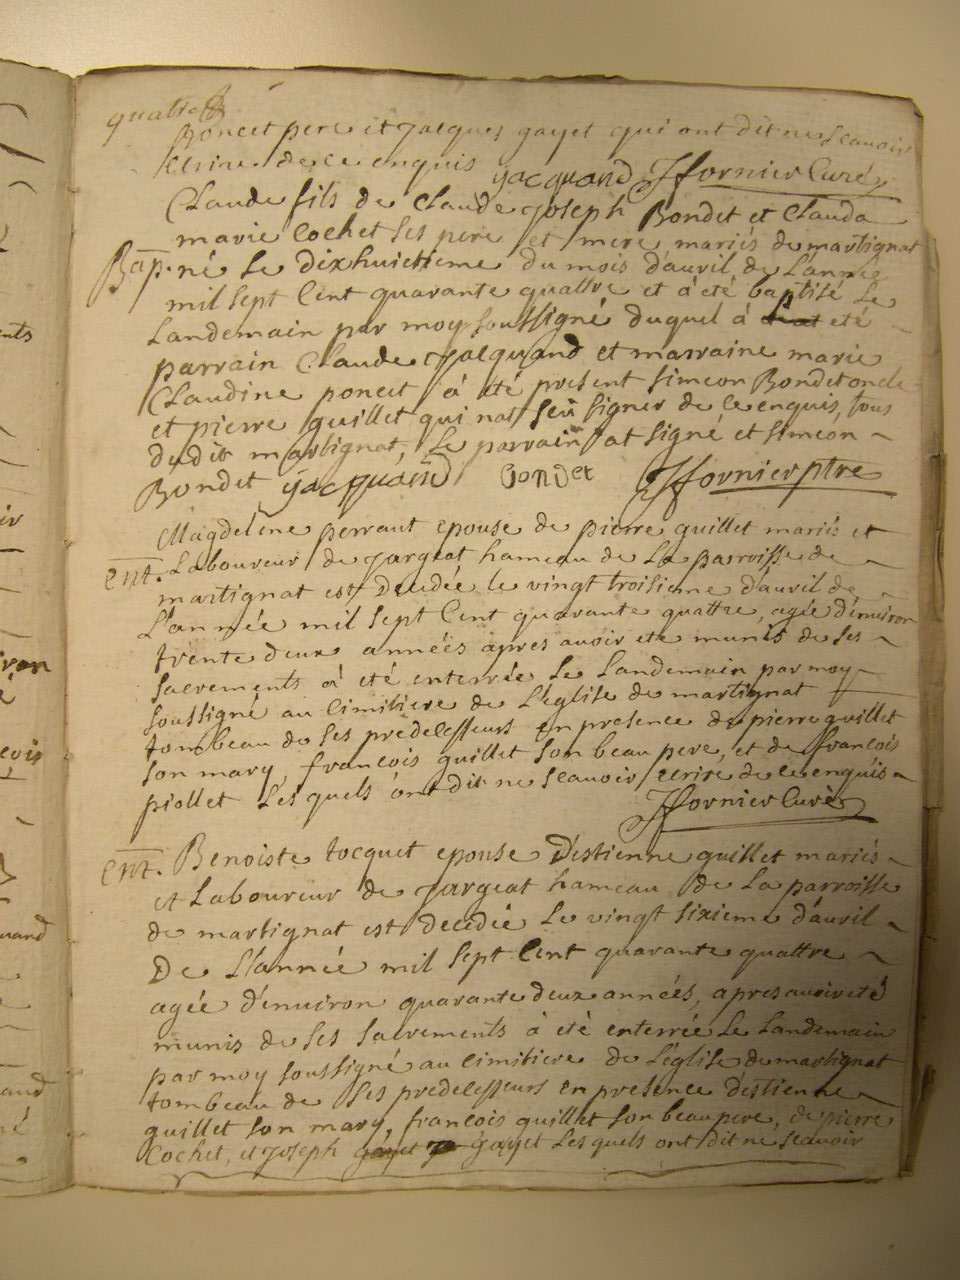 quatre
Poncet pere et jacques gayet qui ont dit ne scavoir
ecrire de ce enquis yacquand JFfornier Curé
Claude fils de Claude Joseph Bondet et Clauda
marie Cochet ses pere et mere mariés de martignat
Bap. né le dixhuictieme du mois d'auril de L'année
mil sept Cent quarante quattre et à été baptisé Le
Landemain par moy soussigné duquel à été
parrain Claude Jacquand et marraine marie
Claudine poncet à été present simeon Bondet oncle
et pierre guillet qui n'at sçu signer de ce enquis, tous
dudit martignat, Le parrain at signé et simeon
Bondet yacquand Bondet JFfornier ptre
Magdeleine perraut epouse de pierre guillet mariés et
Ent. Laboureur de Jargeat hameau de La parroisse de
martignat est decedée le vingt troisieme d'auril de
L'année mil sept Cent quarante quattre, agée d'enuiron
trente deux années apres auoir eté munis de ses
sacrements à été enterrée Le Landemain par moy
soussigné au Cimitiere de L'église de martignat
tombeau de ses predecesseurs en presence de pierre guillet
son mary, francois guillet son beau pere, et de francois
piollet Les quels ont dit ne scauoir ecrire de ce enquis
JFfornier Curé
Ent. Benoiste tocquet epouse d'estienne guillet mariés
et Laboureur de Jargeat hameau de La parroisse
de martignat est decedée Le vingt sixieme d'auril
De L'année mil sept Cent quarante quattre
agée d'enuiron quarante deux années, apres auoir eté
munis de ses sacrements à été enterrée Le Landemain
par moy soussigné au Cimitiere de L'église de martignat
tombeau de ses predecesseurs en presence d'estienne
guillet son mary, francois guillet son beau pere, de pierre
Cochet, et Joseph gayet gayet Les quels ont dit ne scauoir